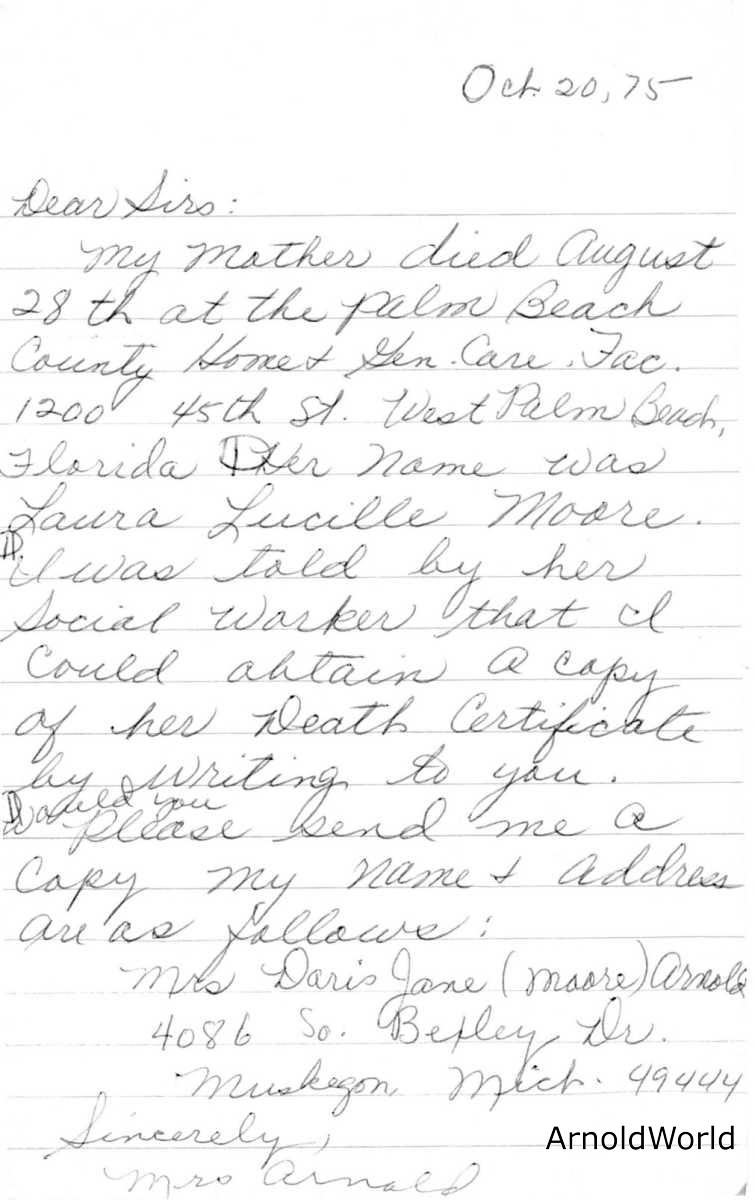 Oct. 20, 75
Dear Sirs:
My Mother died August
28th at the Palm Beach
County Home & Gen. Care. Fac.
1200 45th St. West Palm Beach,
Florida Her name was
Laura Lucille Moore.
I was told by her
Social Worker that I
Could obtain a copy
of her Death Certificate
by writing to you.
Would you
Please send me a
Copy my name & address
are as follows:
Mrs Doris Jane (Moore) Arnold
4086 So. Bexley Dr.
Muskegon, Mich. 49444
Sincerely,
Mrs Arnold
ArnoldWorld